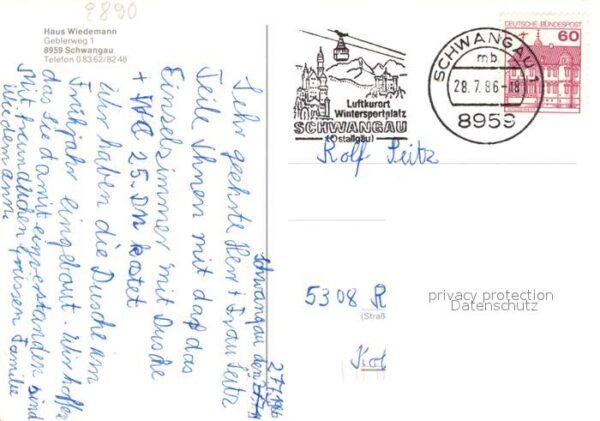 9890
Haus Wiedemann
Geblerweg 1
8959 Schwangau
Telefon 0 83 62/82 48
Luftkurort
Wintersportplatz
SCHWANGAU
(Ostallgäu)
SCHWANGAU 1
mb
28.7.86-18
8959
DEUTSCHE BUNDESPOST
60
Schwangau den
27.7.1986
Sehr geehrte Herr + Frau Seitz
Teile Ihnen mit daß das
Einzelzimmer mit Dusche
+ WC 25.DM kostet
Wir haben die Dusche im
Frühjahr eingebaut. Wir hoffen
das Sie damit einverstanden sind
Mit freundlichen Grüssen Familie
Wiedemann
Rolf Seitz
5308 R
(Straß
privacy protection
Datenschutz